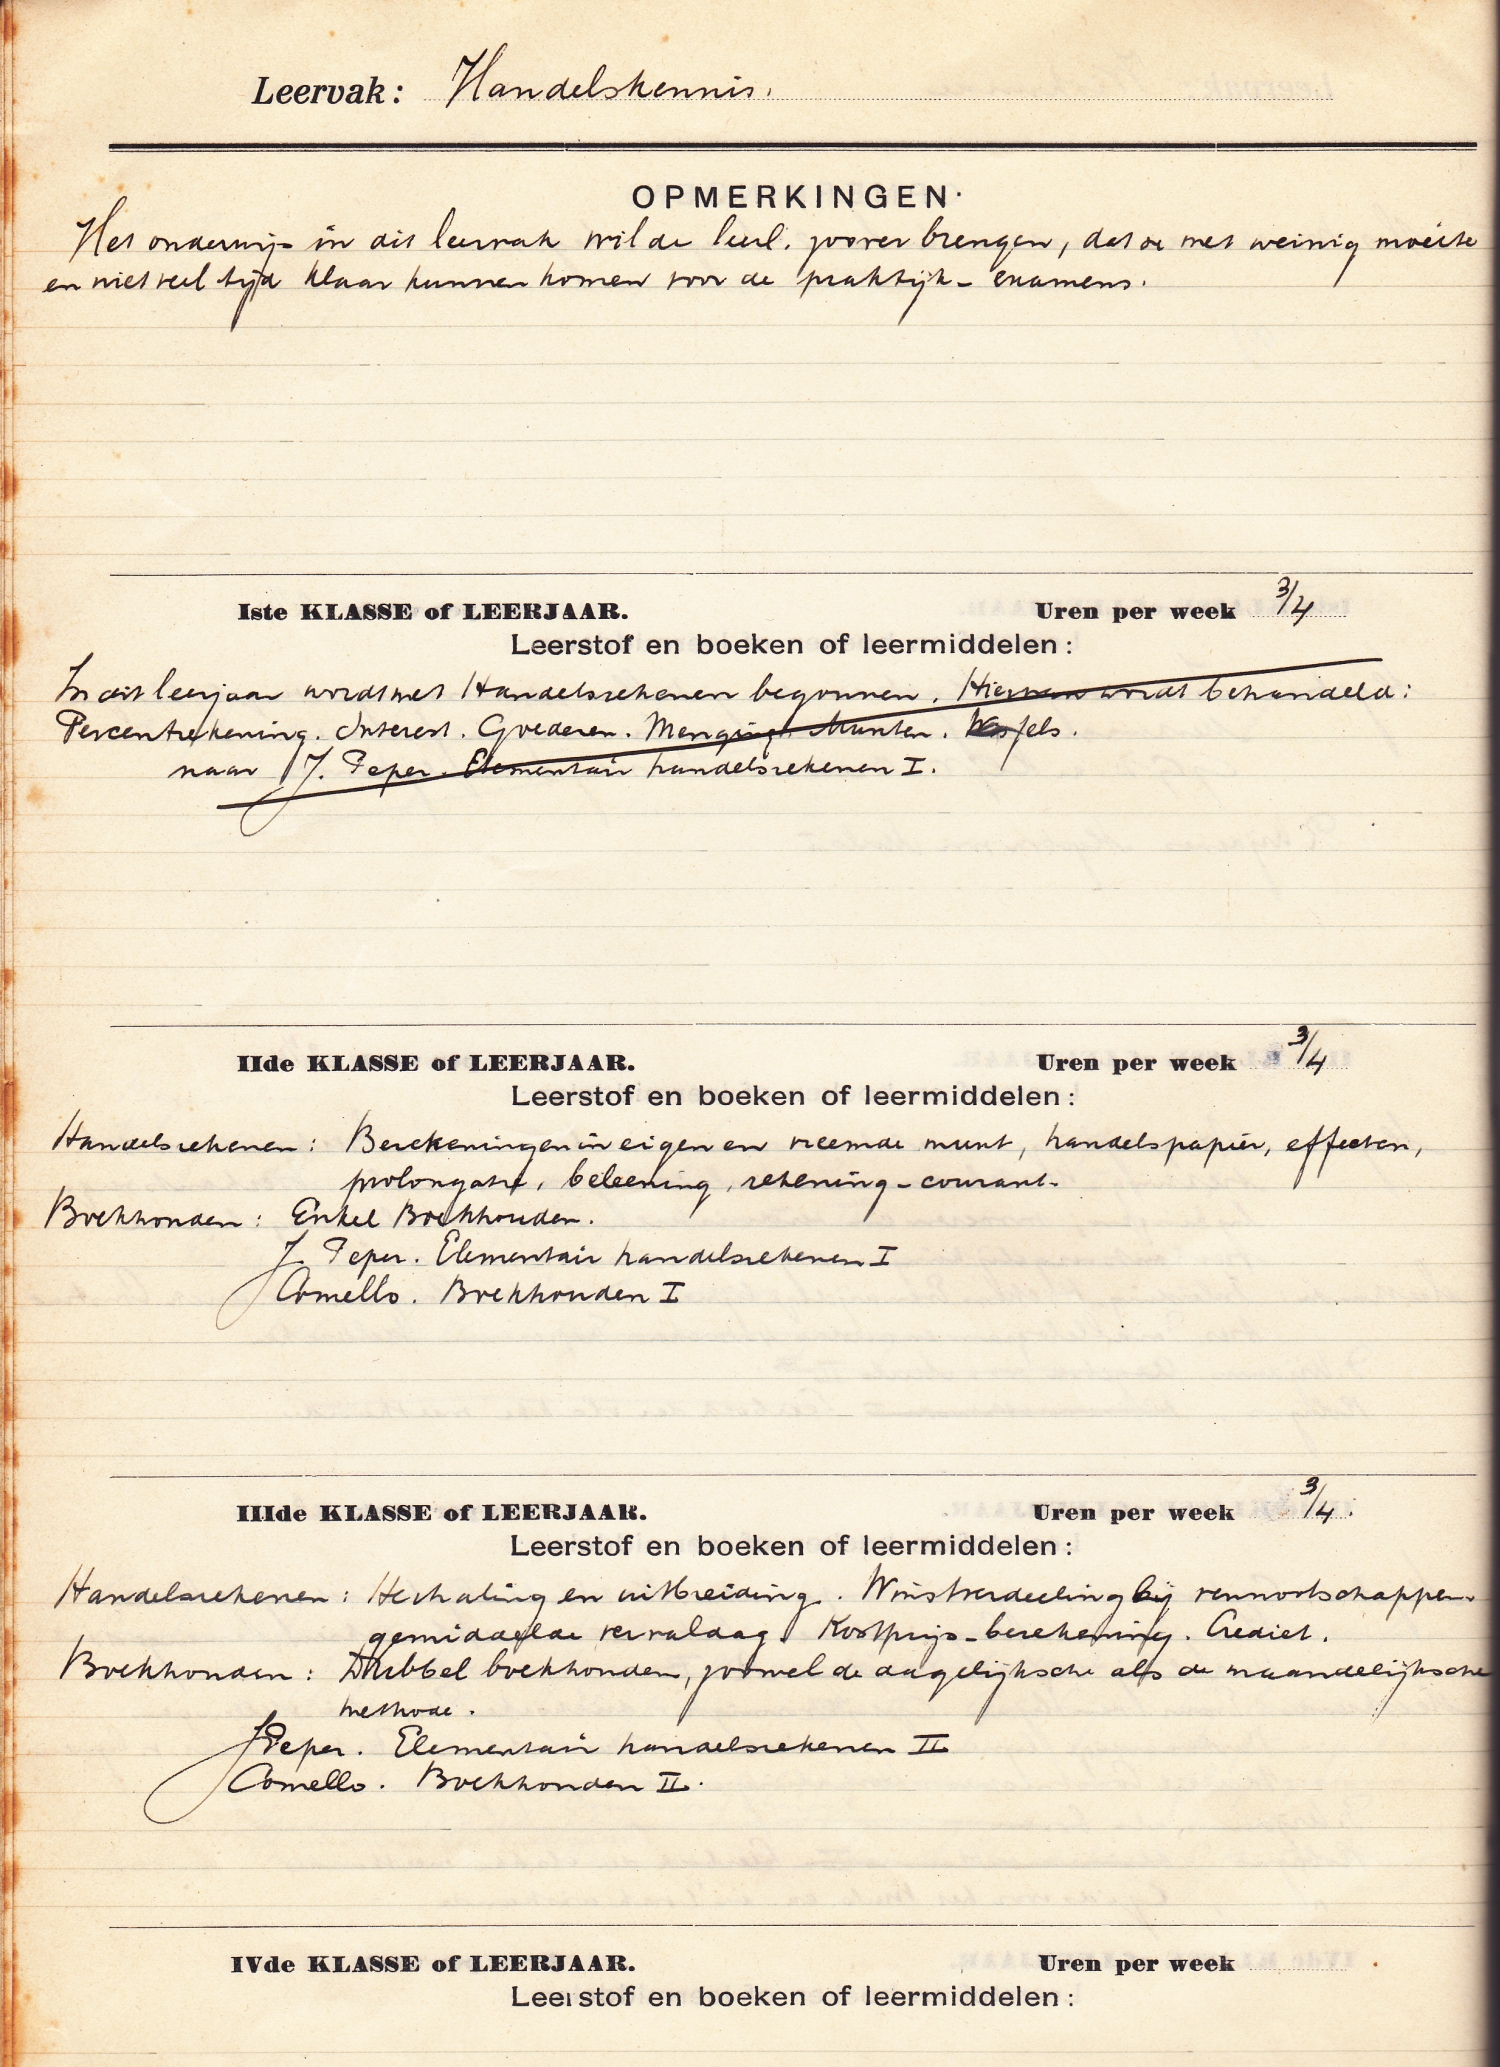 Leervak: Handelskennis.
OPMERKINGEN.
Het onderwijs in dit leervak wil de leerl. zoover brengen, dat ze met weinig moeite
en niet veel tijd klaar kunnen komen voor de praktijk-examens.
Iste KLASSE of LEERJAAR. Uren per week 3/4
Leerstof en boeken of leermiddelen:
In dit leerjaar wordt met Handelsrekenen begonnen. Hiervan wordt behandeld:
Percentrekening. Interest. Goederen. Menging. Munten. Wissels.
naar J. Peper. Elementair handelsrekenen I.
IIde KLASSE of LEERJAAR. Uren per week 3/4
Leerstof en boeken of leermiddelen:
Handelsrekenen: Berekeningen in eigen en vreemde munt, handelspapier, effecten,
prolongatie, beleening, rekening-courant.
Boekhouden: Enkel Boekhouden.
J. Peper. Elementair handelsrekenen I
Comello. Boekhouden I
IIIde KLASSE of LEERJAAR. Uren per week 3/4.
Leerstof en boeken of leermiddelen:
Handelsrekenen: Herhaling en uitbreiding. Winstverdeeling bij vennootschappen
gemiddelde vervaldag. Kostprijs-berekening. Crediet.
Boekhouden: Dubbel boekhouden, zoowel de dagelijksche als de maandelijksche
methode.
J Peper. Elementair handelsrekenen II
Comello. Boekhouden II.
IVde KLASSE of LEERJAAR. Uren per week
Leerstof en boeken of leermiddelen: